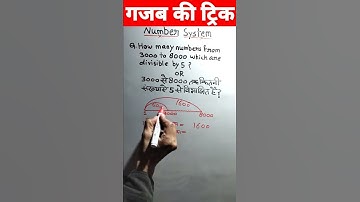 गजब की ट्रिक
Number System
Q. How many numbers from
3000 to 8000 which are
divisible by 5?
OR
3000 से 8000 तक कितनी
संख्याएं 5 से विभाजित हैं?
1600
8000
= 1600